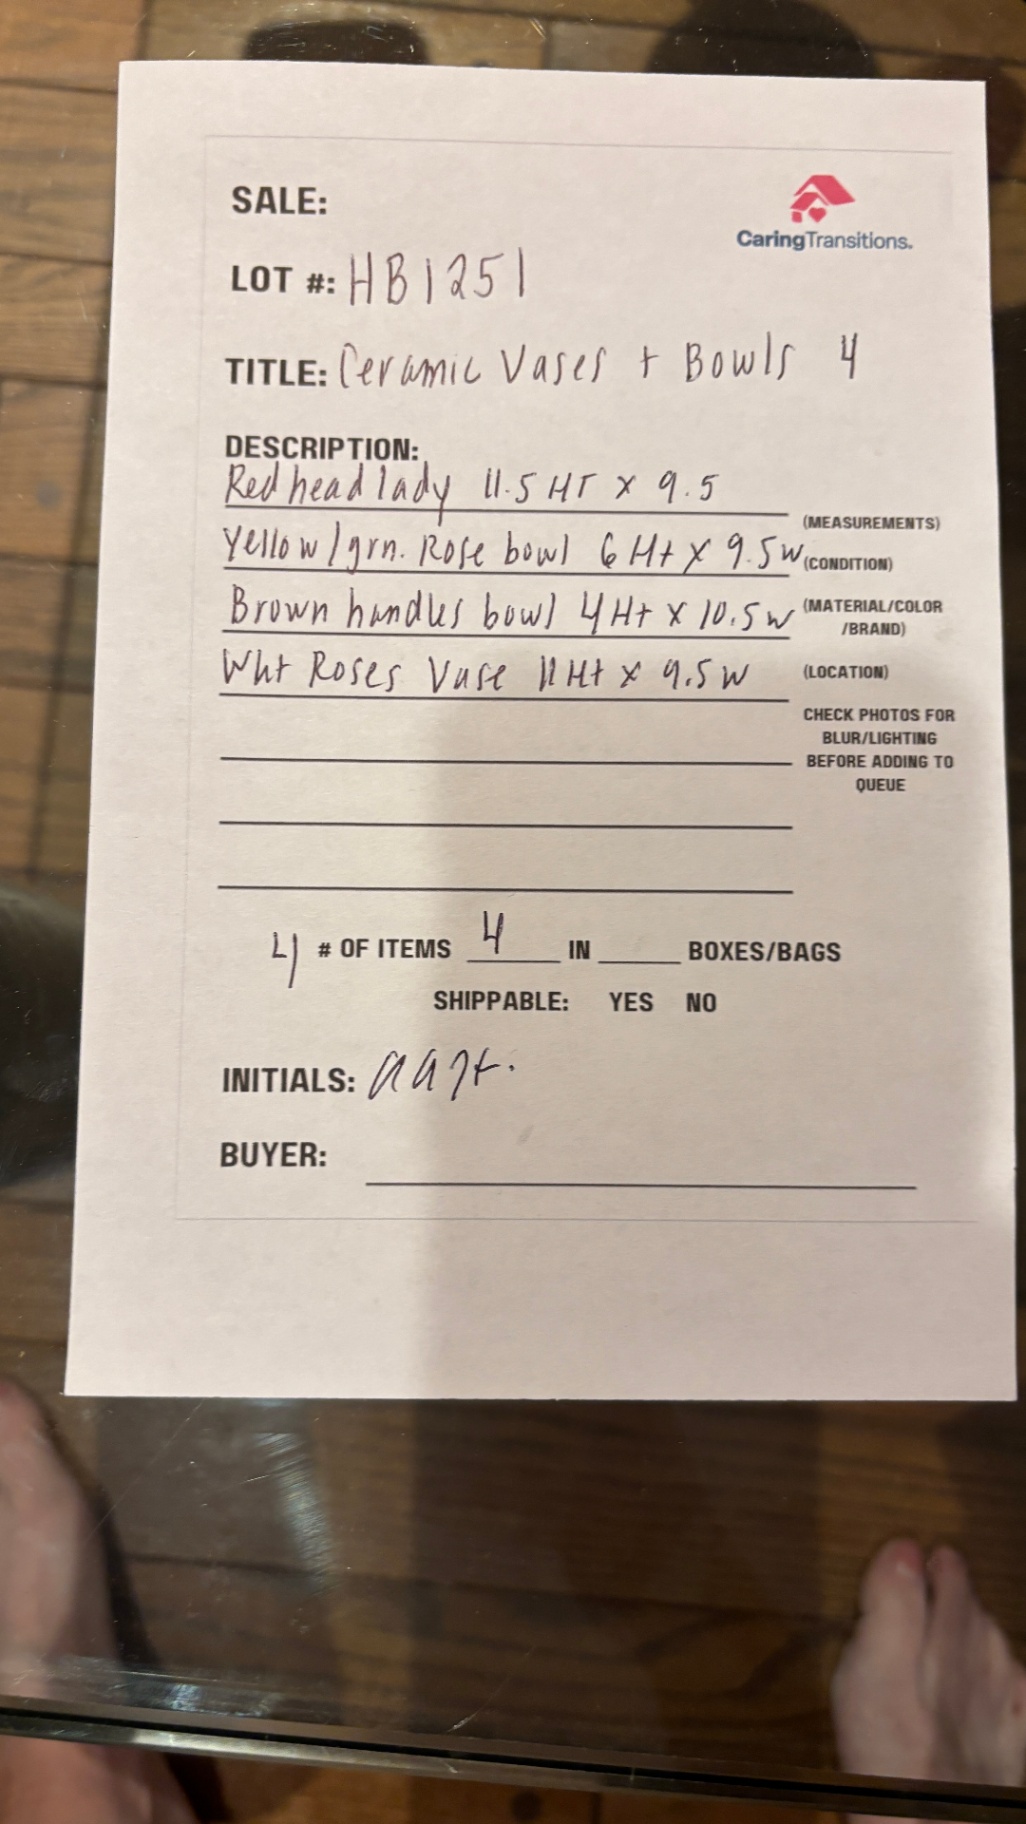 SALE:
CaringTransitions.
LOT #: HB1251
TITLE: Ceramic Vases + Bowls 4
DESCRIPTION:
Red head lady 11.5 HT x 9.5
(MEASUREMENTS)
Yellow/grn. Rose bowl 6 Ht x 9.5w
(CONDITION)
Brown handles bowl 4Ht x 10.5w
(MATERIAL/COLOR
/BRAND)
Wht Roses Vase 11 Ht x 9.5w
(LOCATION)
CHECK PHOTOS FOR
BLUR/LIGHTING
BEFORE ADDING TO
QUEUE
4 # OF ITEMS 4 IN ____ BOXES/BAGS
SHIPPABLE: YES NO
INITIALS:
BUYER: